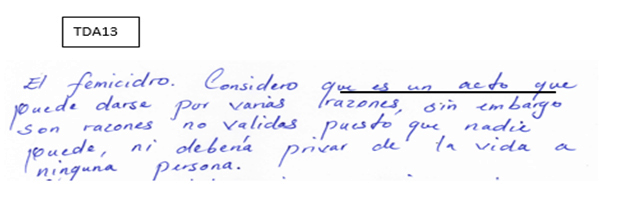 TDA13
El femicidro. Considero que es un acto que
puede darse por varias razones, sin embargo
son razones no validas puesto que nadie
puede, ni debería privar de la vida a
ninguna persona.